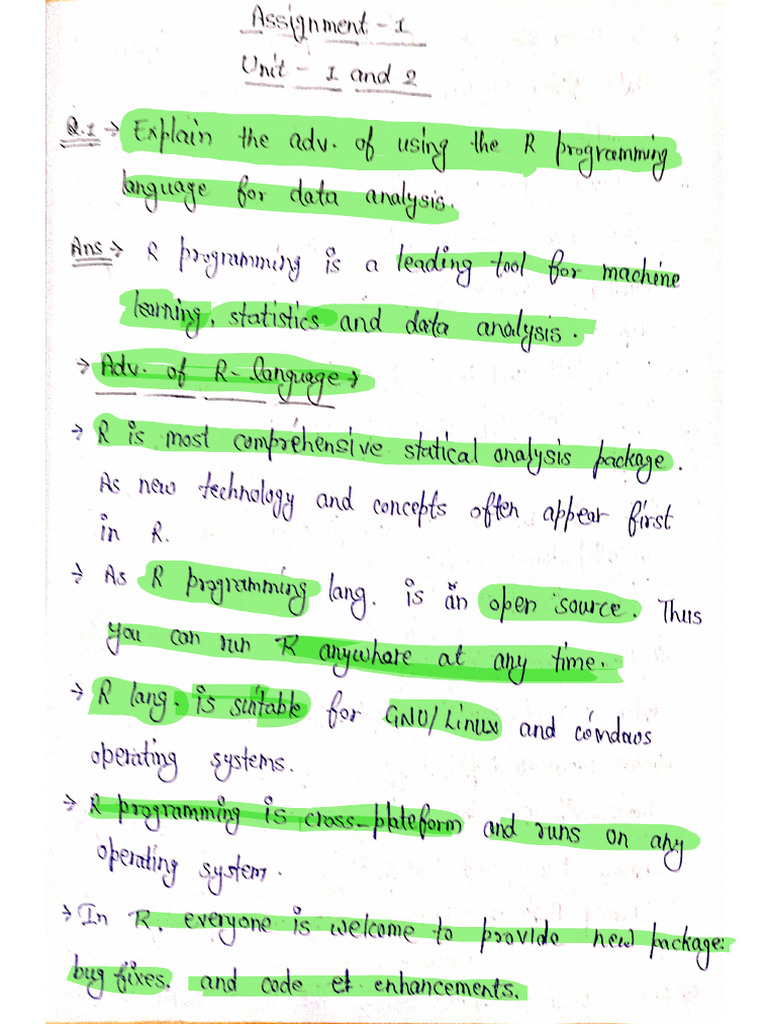 Assignment - 1
Unit - 1 and 2
Q.1 → Explain the adv. of using the R programming
language for data analysis.
Ans → R programming is a leading tool for machine
learning, statistics and data analysis.
→ Adv. of R-language →
→ R is most comprehensive statical analysis package.
As new technology and concepts often appear first
in R.
→ As R programming lang. is an open source. Thus
you can run R anywhere at any time.
→ R lang. is suitable for GNO/Linux and
operating systems.
→ R programming is cross-plateform and runs on any
operating system.
→ In R, everyone is welcome to provide new package,
bug fixes, and code et enhancements.